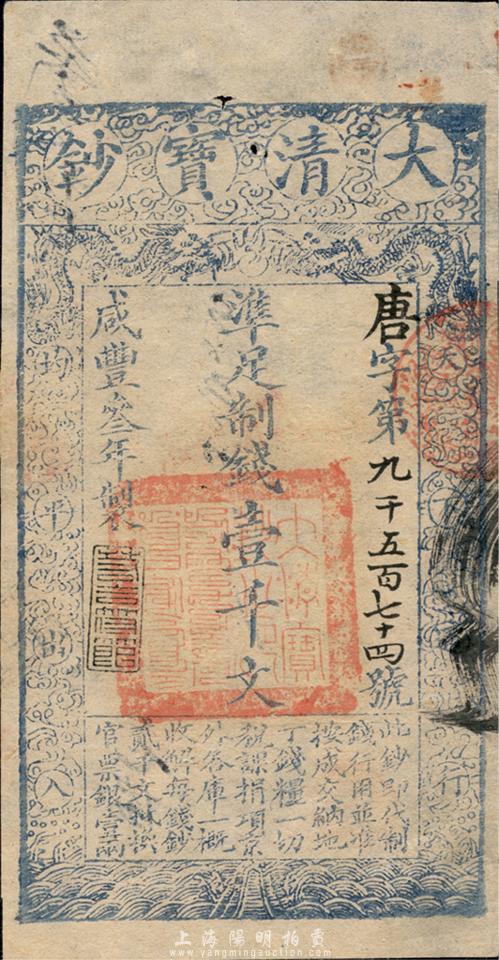 大清寶鈔
唐字第九千五百七十四號
準足制錢壹千文
咸豐叁年製
天
行
均平出入
此鈔即代制
錢行用並準
按成交納地
丁錢糧一切
稅課捐項京
外各庫一概
收解每錢鈔
貳千文抵換
官票銀壹兩
上海陽明拍賣
www.yangmingauction.com